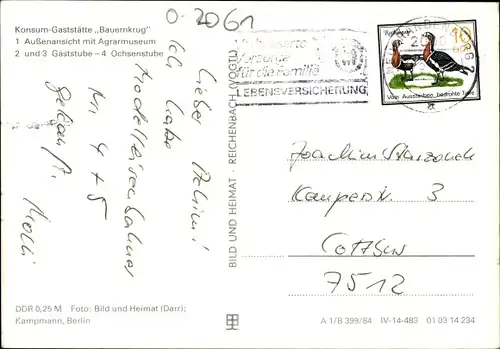 Konsum-Gaststätte „Bauernkrug"
1 Außenansicht mit Agrarmuseum
2 und 3 Gaststube – 4 Ochsenstube
0-2061
Lieber Achim!
Ich habe
Modelleisenbahner
Nr. 4 + 5
gekauft.
DDR 0,25 M Foto: Bild und Heimat (Darr);
Kampmann, Berlin
BILD UND HEIMAT · REICHENBACH (VOGTL)
Vorsorge
für die Familie
LEBENSVERSICHERUNG
10
Vom Aussterben bedrohte Tiere
Joachim
3
Cottbus
7512
A 1/B 399/84 IV-14-483 01 03 14 234